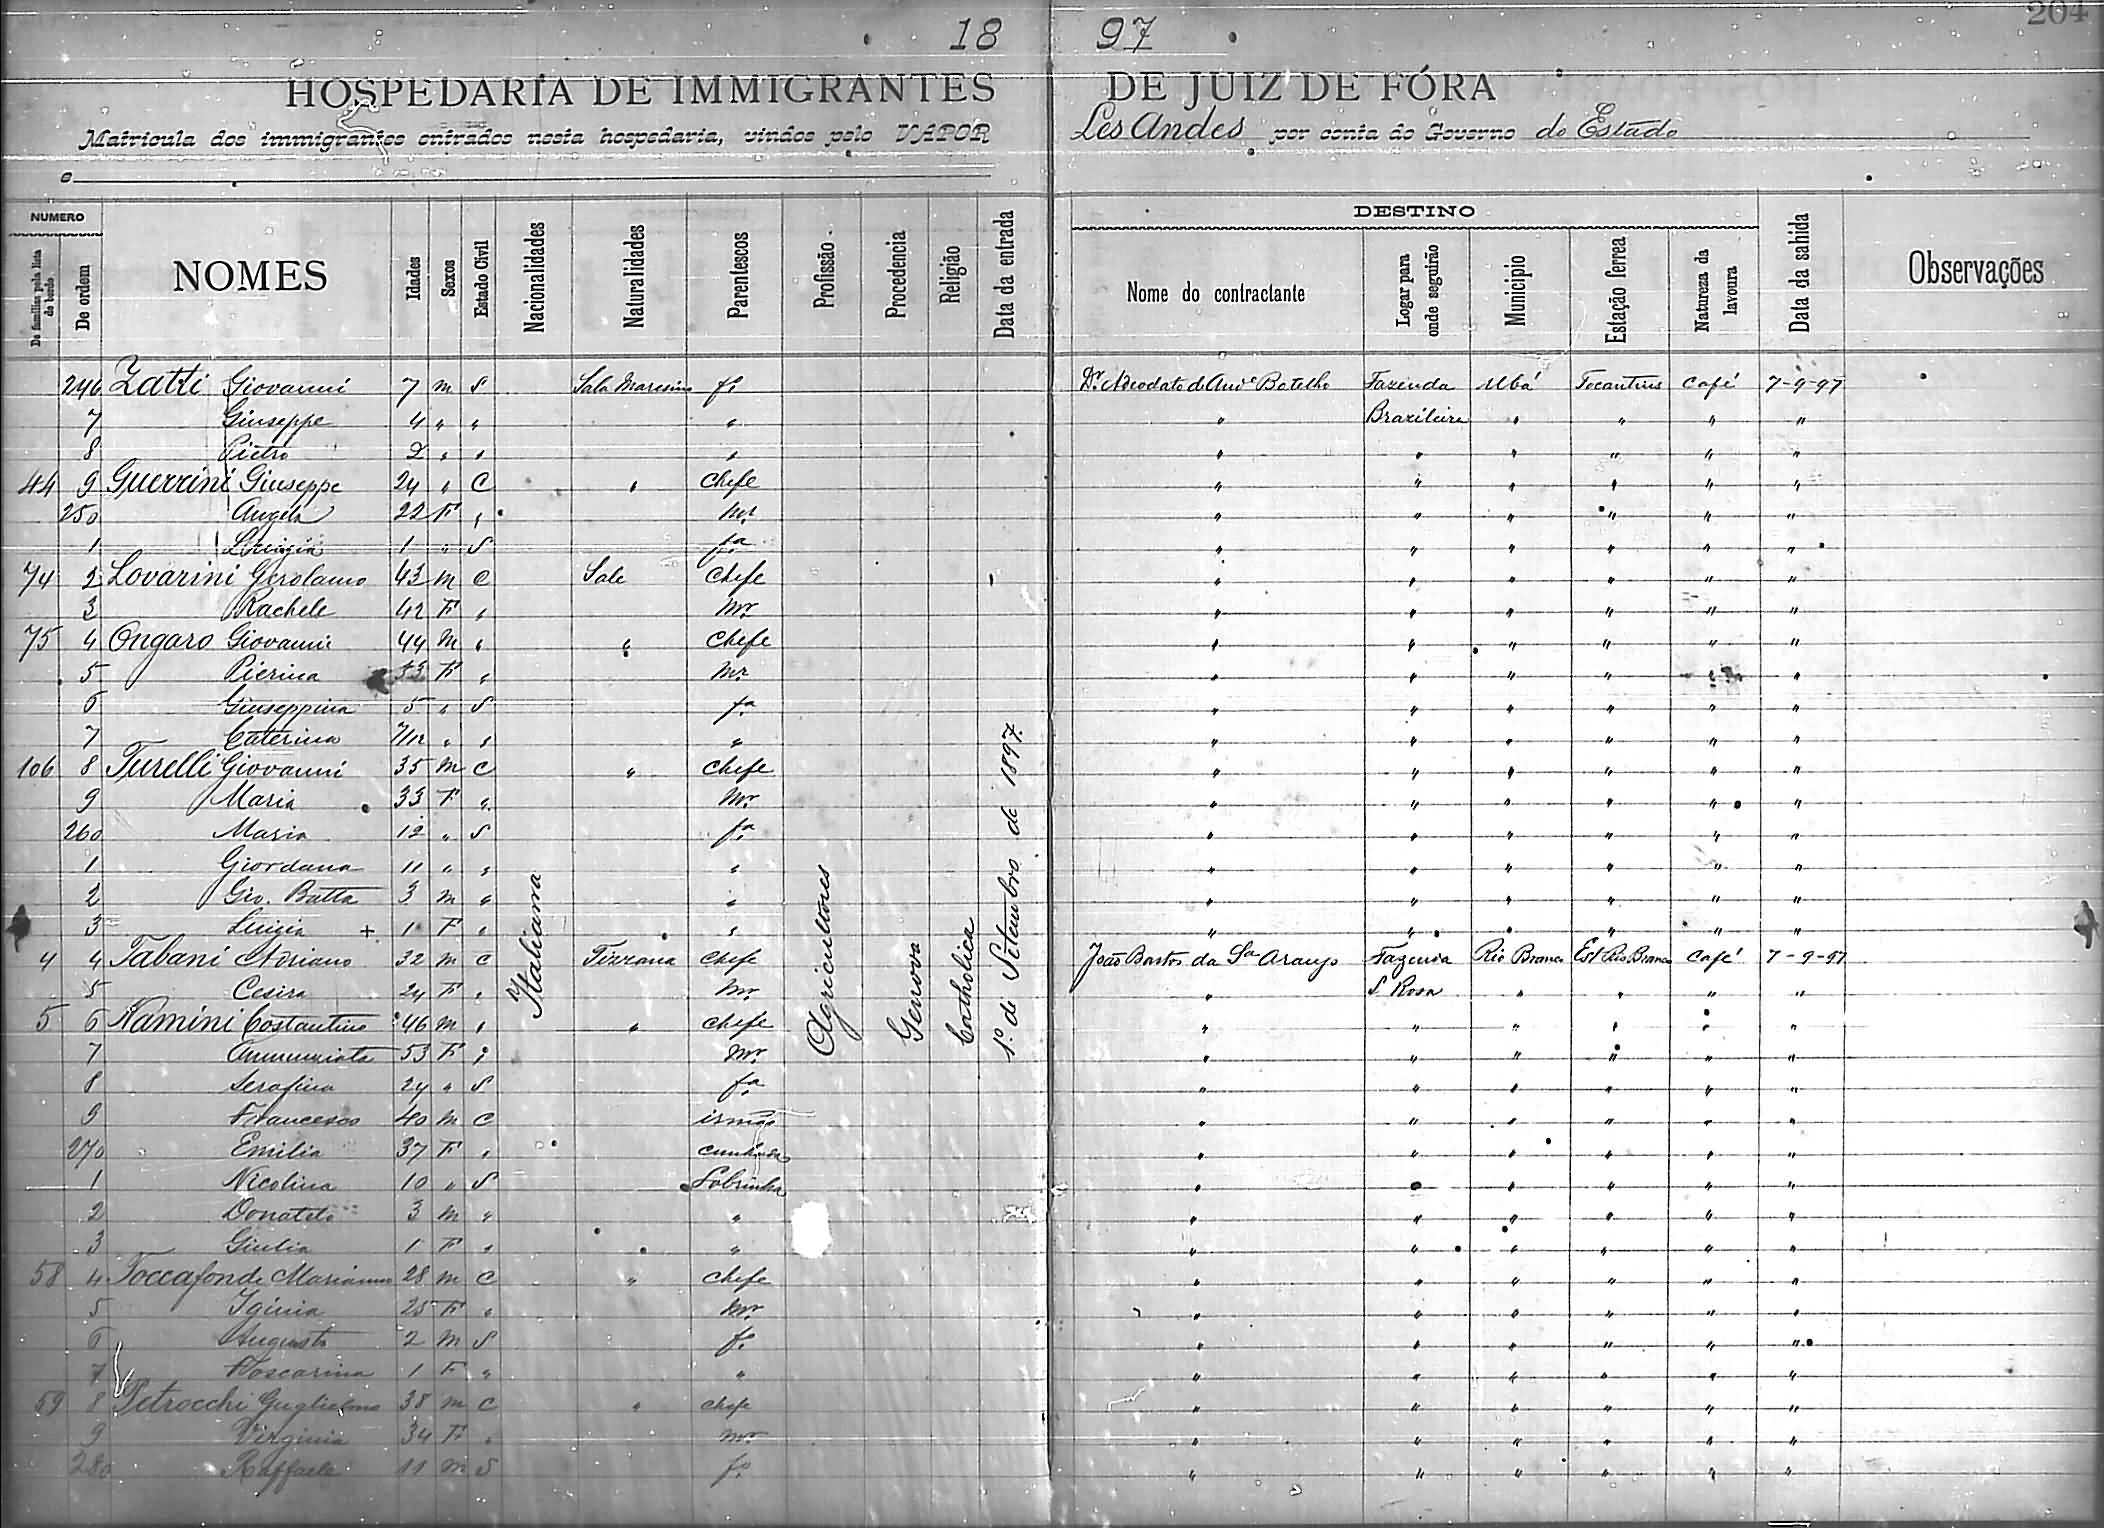 204
18 97
HOSPEDARIA DE IMMIGRANTES DE JUIZ DE FÓRA
Matricula dos immigrantes entrados nesta hospedaria, vindos pelo VAPOR Les Andes por conta do Governo do Estado
e
NUMERO DESTINO
De familias pela lista de bordo De ordem NOMES Idades Sexos Estado Civil Nacionalidades Naturalidades Parentescos Profissão Procedencia Religião Data da entrada Nome do contractante Logar para onde seguirão Municipio Estação ferrea Natureza da lavoura Data da sahida Observações
246 Zatti Giovanni 7 m S Sala fo Botelho Fazenda Ubá Tocantins Café 7-9-97
7 Giuseppe 4 " " " " Brazileira " " " "
8 Pietro 2 " " " " " " " " "
44 9 Guerrini Giuseppe 24 " C " Chefe " " " " " "
250 Angela 22 F " mr " " " " " "
1 Luigia 1 " S fa " " " " " "
74 2 Lovarini Gerolamo 43 m C Sale Chefe " " " " " "
3 Rachele 42 F " mr " " " " " "
75 4 Ongaro Giovanni 44 m " " Chefe " " " " " "
5 Pierina 33 F " mr " " " " " "
6 Giuseppina 5 " S fa " " " " " "
7 Caterina 7/12 " " " " " " " " "
106 8 Turelli Giovanni 35 m C " Chefe " " " " " "
9 Maria 33 F " mr " " " " " "
260 Maria 12 " S fa " " " " " "
1 Giordana 11 " " " " " " " " "
2 Gio. Batta 3 m " " " " " " " "
3 Luigia + 1 F " " " " " " " "
4 4 Tabani Adriano 32 m C Tizzana Chefe João Bastos da Sa Araujo Fazenda Rio Branco Est Rio Branco Café 7-9-97
5 Cesira 24 F " mr " S Rosa " " " "
5 6 Namini Costantino 46 m " " Chefe " " " " " "
7 Annunziata 53 F " mr " " " " " "
8 Serafina 24 " S fa " " " " " "
9 Francesco 40 m C irmão " " " " " "
270 Emilia 37 F " cunhada " " " " " "
1 Nicolina 10 " S Sobrinha " " " " " "
2 Donatelo 3 m " " " " " " " "
3 Giulia 1 F " " " " " " " "
58 4 Toccafonde Marianno 28 m C " Chefe " " " " " "
5 Iginia 25 F " mr " " " " " "
6 Augusto 2 m S fo " " " " " "
7 Toscarina 1 F " " " " " " " "
59 8 Petrocchi Guglielmo 38 m C " chefe " " " " " "
9 Virginia 34 F " mr " " " " " "
280 Raffaele 11 m S fo " " " " " "
Italiana
Agricultores
Genova
Catholica
1º de Setembro de 1897